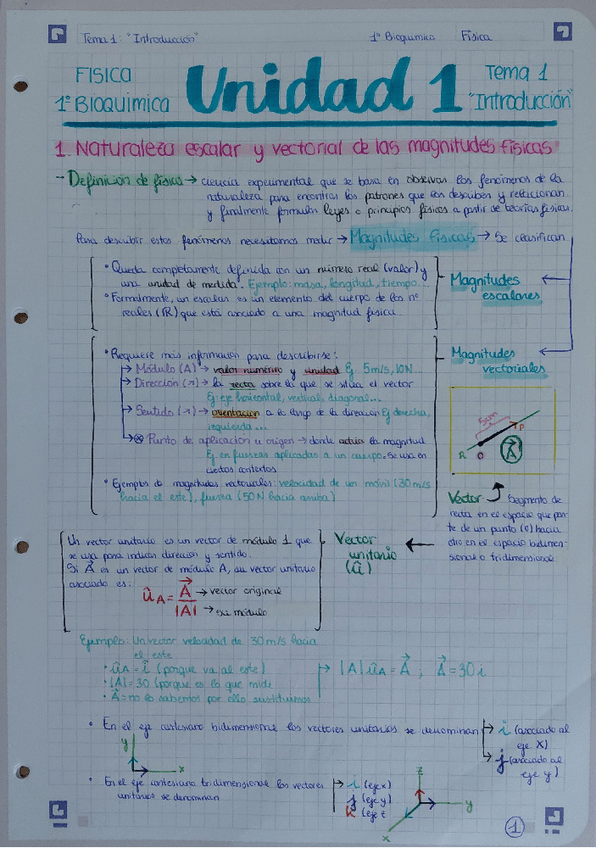 Tema 1: "Introducción" 1º Bioquímica Física
FISICA
1º BIOQUIMICA
Unidad 1
Tema 1
"Introducción"
1. Naturaleza escalar y vectorial de las magnitudes físicas
- Definición de física → ciencia experimental que se basa en observar los fenómenos de la
naturaleza para encontrar los patrones que los describen y relacionan
y finalmente formular leyes o principios físicos a partir de teorías físicas.
Para describir estos fenómenos necesitamos medir → Magnitudes físicas → Se clasifican
• Queda completamente definida con un número real (valor) y
una unidad de medida. Ejemplo: masa, longitud, tiempo...
• Formalmente, un escalar es un elemento del cuerpo de los nº
reales (ℝ) que está asociado a una magnitud física
Magnitudes
escalares
• Requiere más información para describirse:
→ Módulo (A) → valor numérico y unidad Ej 5m/s, 10N...
→ Dirección (↗) → la recta sobre la que se sitúa el vector
Ej: eje horizontal, vertical, diagonal...
→ Sentido (→) → orientación a lo largo de la dirección Ej derecha,
izquierda...
→ ⊗ Punto de aplicación u origen → donde actúa la magnitud
Ej. en fuerzas aplicadas a un cuerpo. Se usa en
ciertos contextos
• Ejemplos de magnitudes vectoriales: velocidad de un móvil (30 m/s
hacia el este), fuerza (50N hacia arriba)
Magnitudes
vectoriales
5cm
R O P
A⃗
Vector → Segmento de
recta en el espacio que par-
te de un punto (O) hacia
otro en el espacio bidimen-
sional o tridimensional.
Un vector unitario es un vector de módulo 1 que
se usa para indicar dirección y sentido.
Si A⃗ es un vector de módulo A, su vector unitario
asociado es:
û_A = A⃗ → vector original
|A| → su módulo
Vector
unitario
(û)
Ejemplo: Un vector velocidad de 30 m/s hacia
el este
• û_A = i⃗ (porque va al este)
• |A| = 30 (porque es lo que mide
• A⃗ = no lo sabemos por ello sustituimos
→ |A| û_A = A⃗ ; A⃗ = 30 i
• En el eje cartesiano bidimensional los vectores unitarios se denominan
→ i (asociado al
eje X)
→ j (asociado al
eje y)
y
x
• En el eje cartesiano tridimensional los vectores
unitarios se denominan
→ i (eje x)
j (eje y)
k (eje z
z
y
x
1